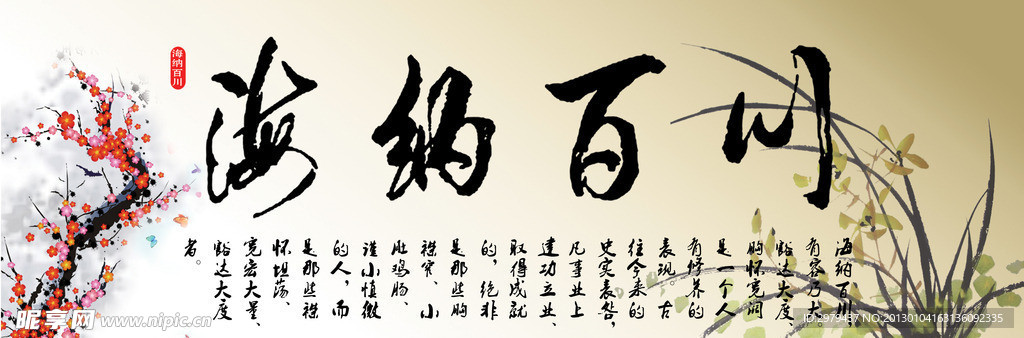 海纳百川
海纳百川
海纳百川、
有容乃大。
豁达大度、
胸怀宽阔
是一个人
有修养的
表现。古
往今来的
史实表
凡事业上
建功立业、
取得成就
的，绝非
是那些胸
襟窄、小
肚鸡肠、
谨小慎微
的人，而
是那些襟
怀坦荡、
宽宏大量、
豁达大度
者。
昵享网 www.nipic.cn
ID:2979437 NO:20130104163136092335